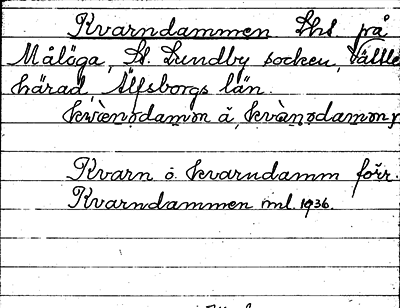 Kvarndammen Lht på
Målöga, St. Lundby socken, Vättle
härad, Älfsborgs län.
kvàrnndamən å kvàrnndamən,
Kvarn o. kvarndamm förr.
Kvarndammen ml. 1936.